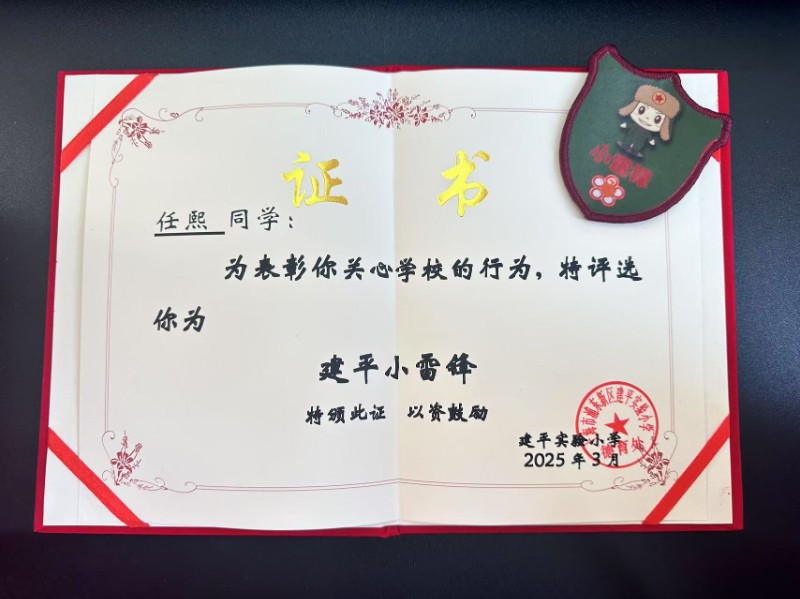 证 书
任熙 同学：
为表彰你关心学校的行为，特评选
你为
建平小雷锋
特颁此证 以资鼓励
建平实验小学
2025年3月
上海市浦东新区建平实验小学
德育处
小雷锋